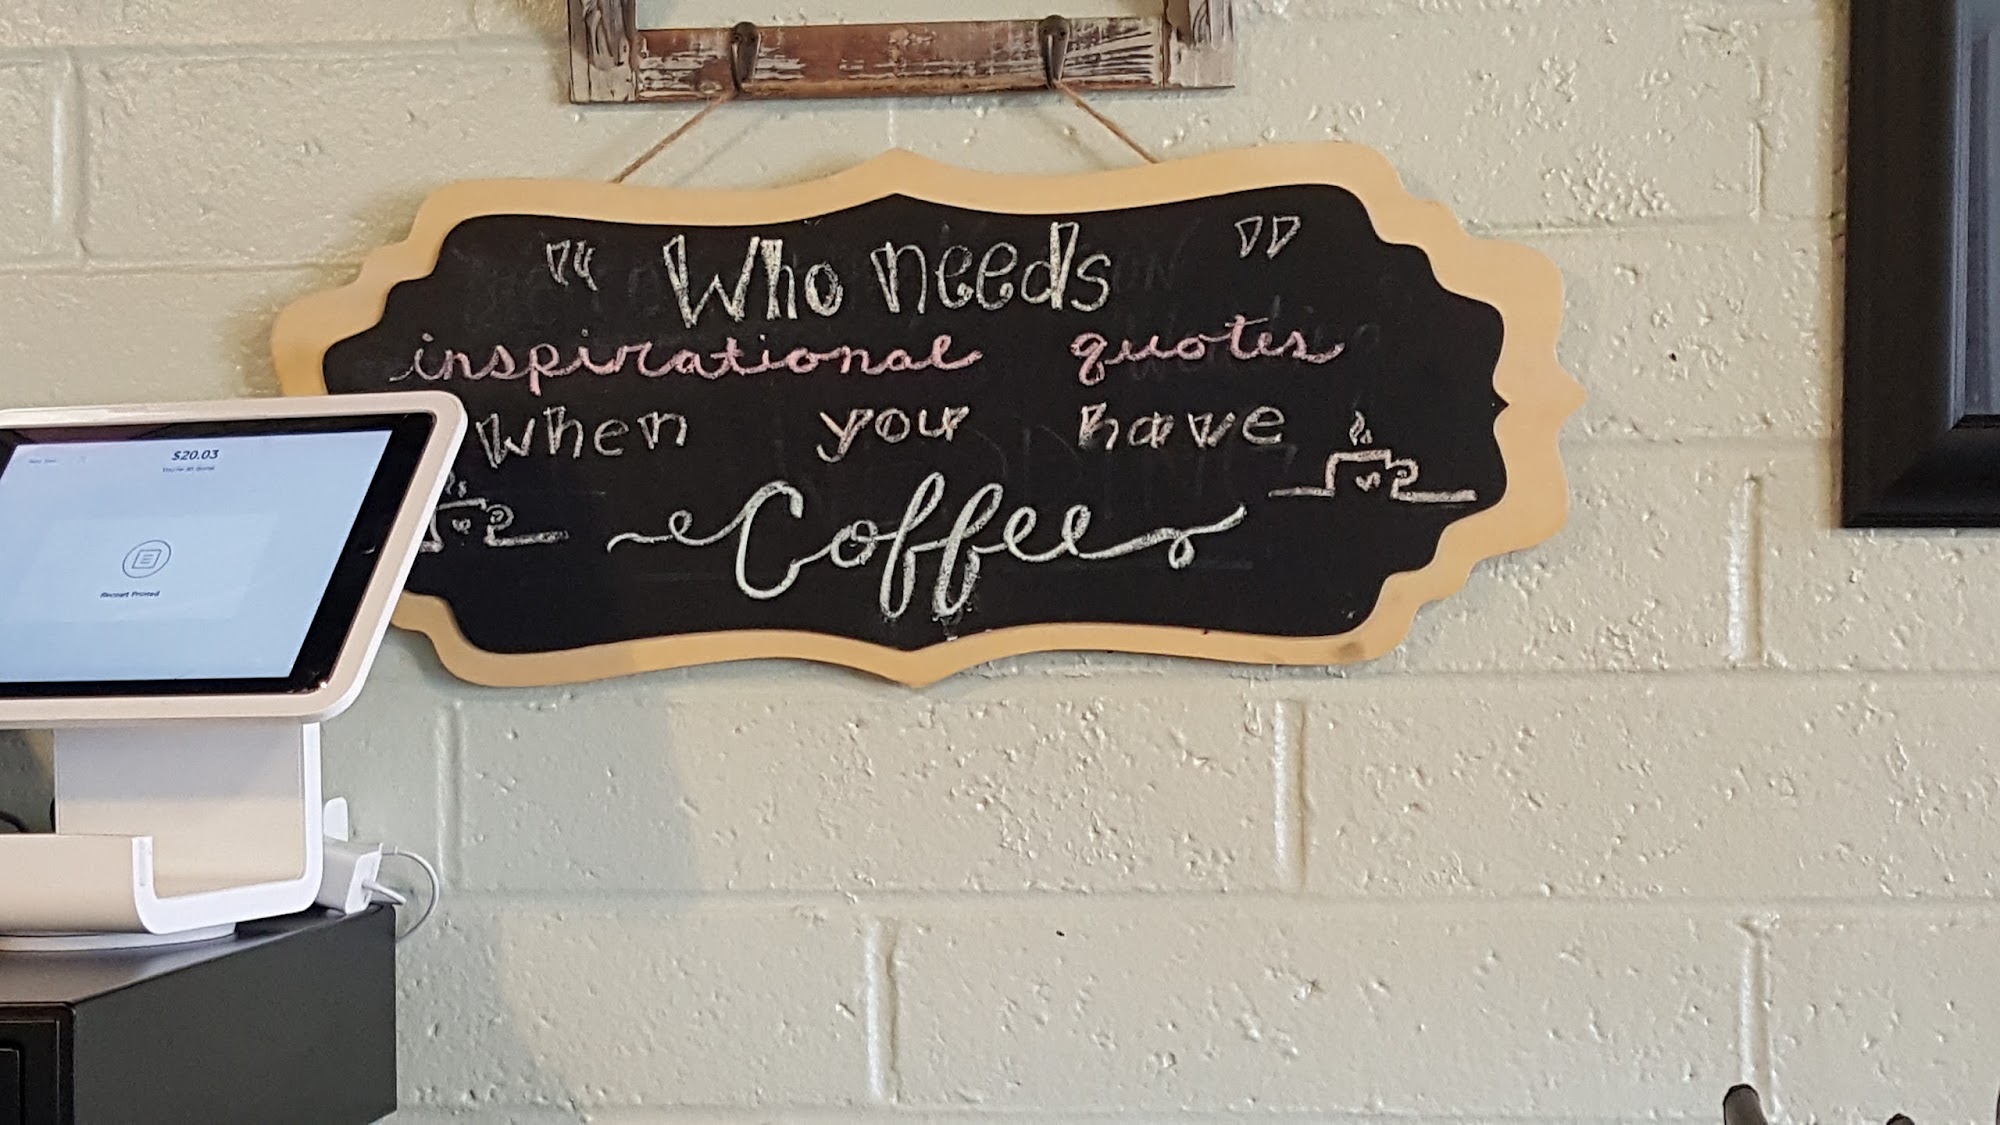 " Who needs "
inspirational quotes
when you have
Coffee
$20.03
You're all done!
Receipt Printed